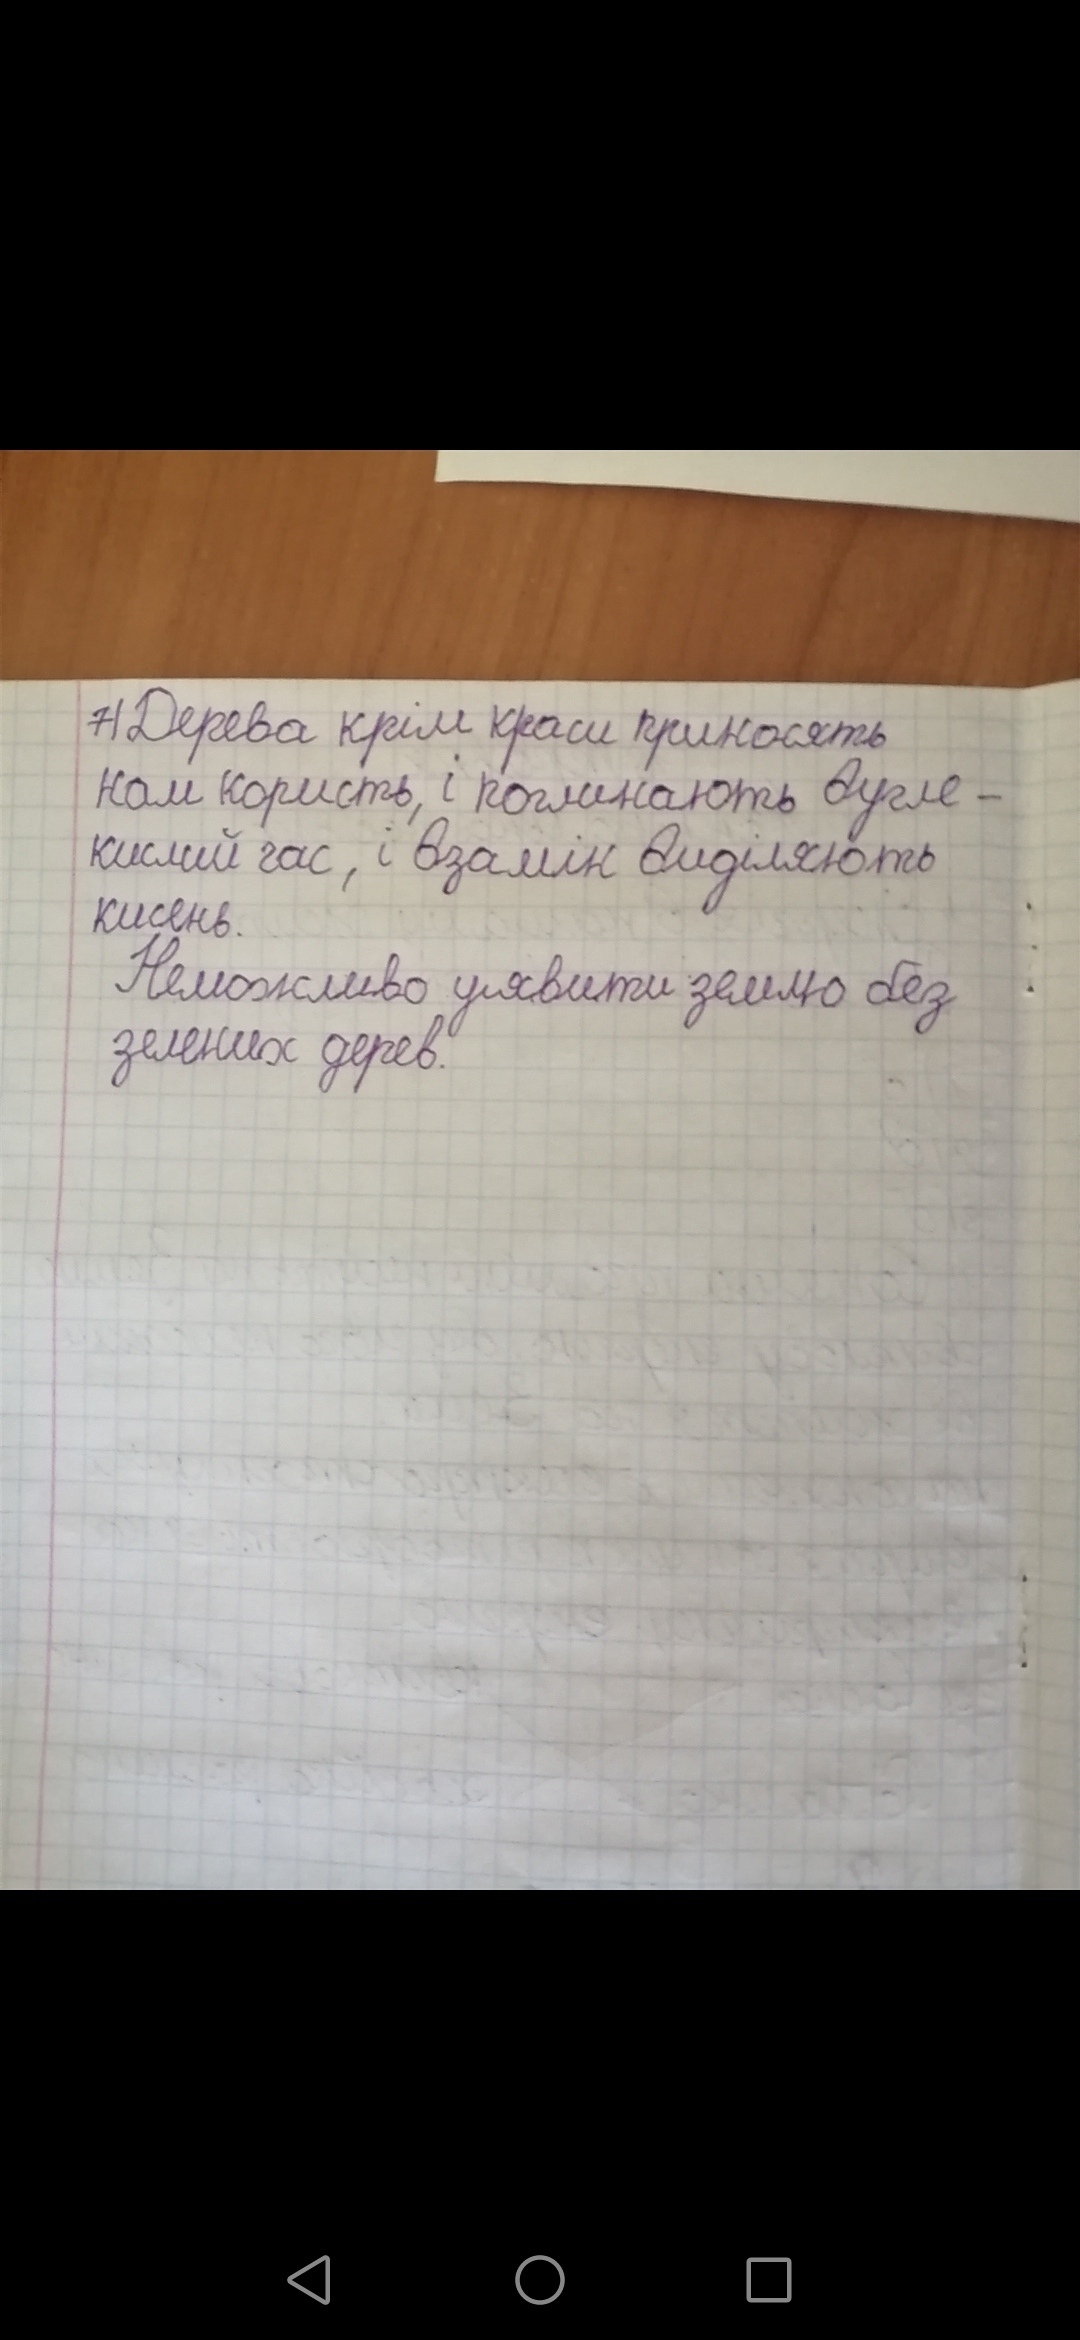 7) Дерева крім краси приносять
нам користь, і поглинають вугле-
кислий гас, і взамін виділяють
кисень.
Неможливо уявити землю без
зелених дерев.